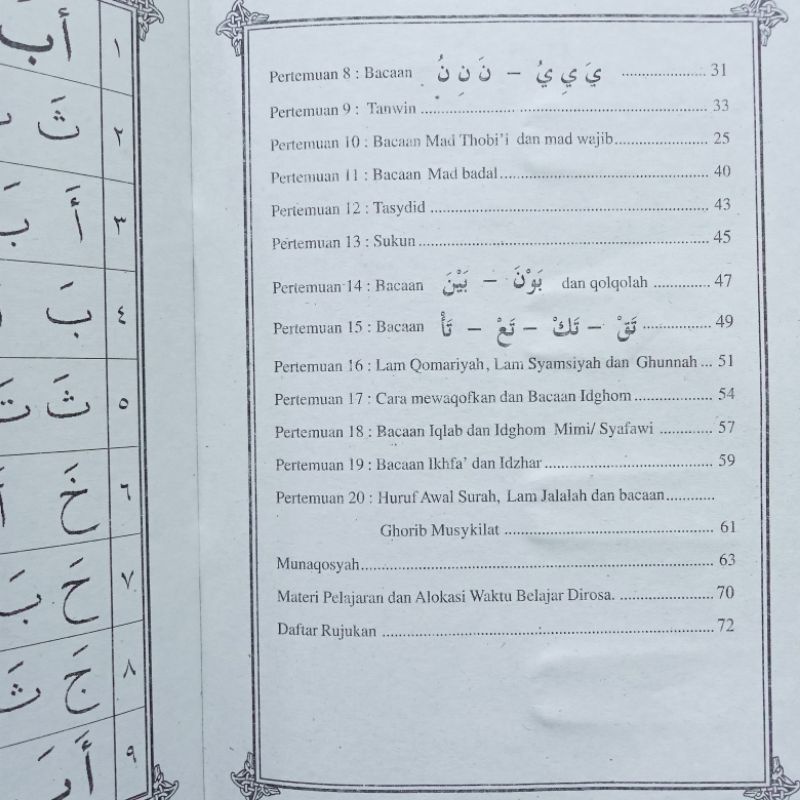 Pertemuan 8 : Bacaan نَ نِ نُ – يَ يِ يُ ..................... 31
Pertemuan 9 : Tanwin ..................... 33
Pertemuan 10 : Bacaan Mad Thobi'i dan mad wajib..................... 25
Pertemuan 11 : Bacaan Mad badal..................... 40
Pertemuan 12 : Tasydid ..................... 43
Pertemuan 13 : Sukun..................... 45
Pertemuan 14 : Bacaan بَوْنَ – بَيْنَ dan qolqolah .............. 47
Pertemuan 15 : Bacaan تَقْ – تَكْ – تَعْ – تَأْ ................. 49
Pertemuan 16 : Lam Qomariyah, Lam Syamsiyah dan Ghunnah ... 51
Pertemuan 17 : Cara mewaqofkan dan Bacaan Idghom..................... 54
Pertemuan 18 : Bacaan Iqlab dan Idghom Mimi/ Syafawi ............. 57
Pertemuan 19 : Bacaan Ikhfa' dan Idzhar..................... 59
Pertemuan 20 : Huruf Awal Surah, Lam Jalalah dan bacaan............
Ghorib Musykilat ..................... 61
Munaqosyah..................... 63
Materi Pelajaran dan Alokasi Waktu Belajar Dirosa. ..................... 70
Daftar Rujukan ..................... 72
١
٢ ثَ
٣ أَ بَ
٤ بَ
٥ ثَ تَ
٦ خَ
٧ حَ بَ
٨ جَ ثَ
٩